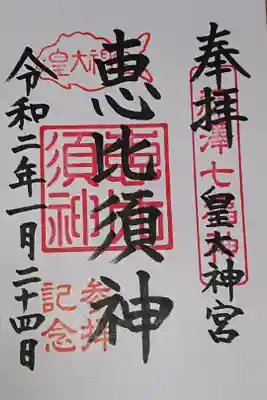 奉拝
藤澤七福神
皇大神宮
恵比須神
恵比須神
皇大神宮
参拝記念
令和二年一月二十四日